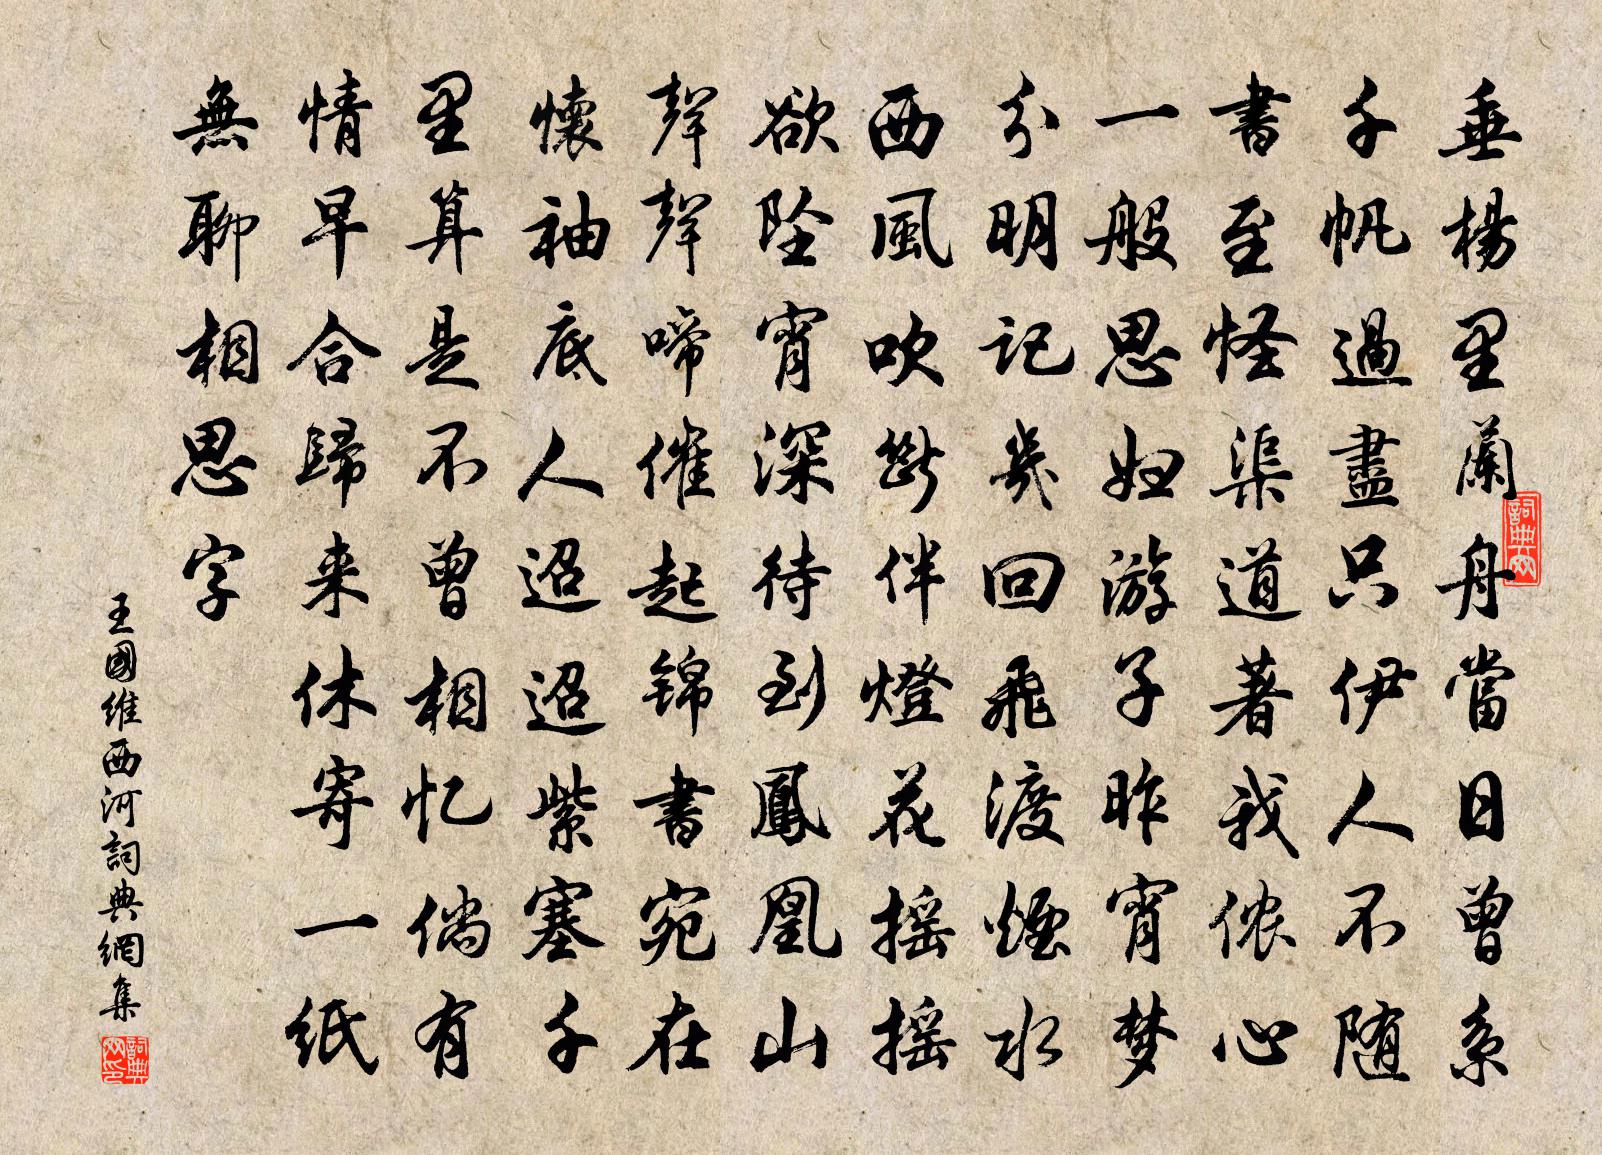 垂楊里蘭舟當日曾系
千帆過盡只伊人不随
書至怪渠道著我侬心
一般思妇游子昨宵梦
分明記幾回飛渡煙水
西風吹斷伴燈花摇摇
欲坠宵深待到鳳凰山
聲聲啼催起锦書宛在
懷袖底人迢迢紫塞千
里算是不曾相忆倘有
情早合歸来休寄一纸
無聊相思字
王國維西河詞典網集
詞典网
詞典网印